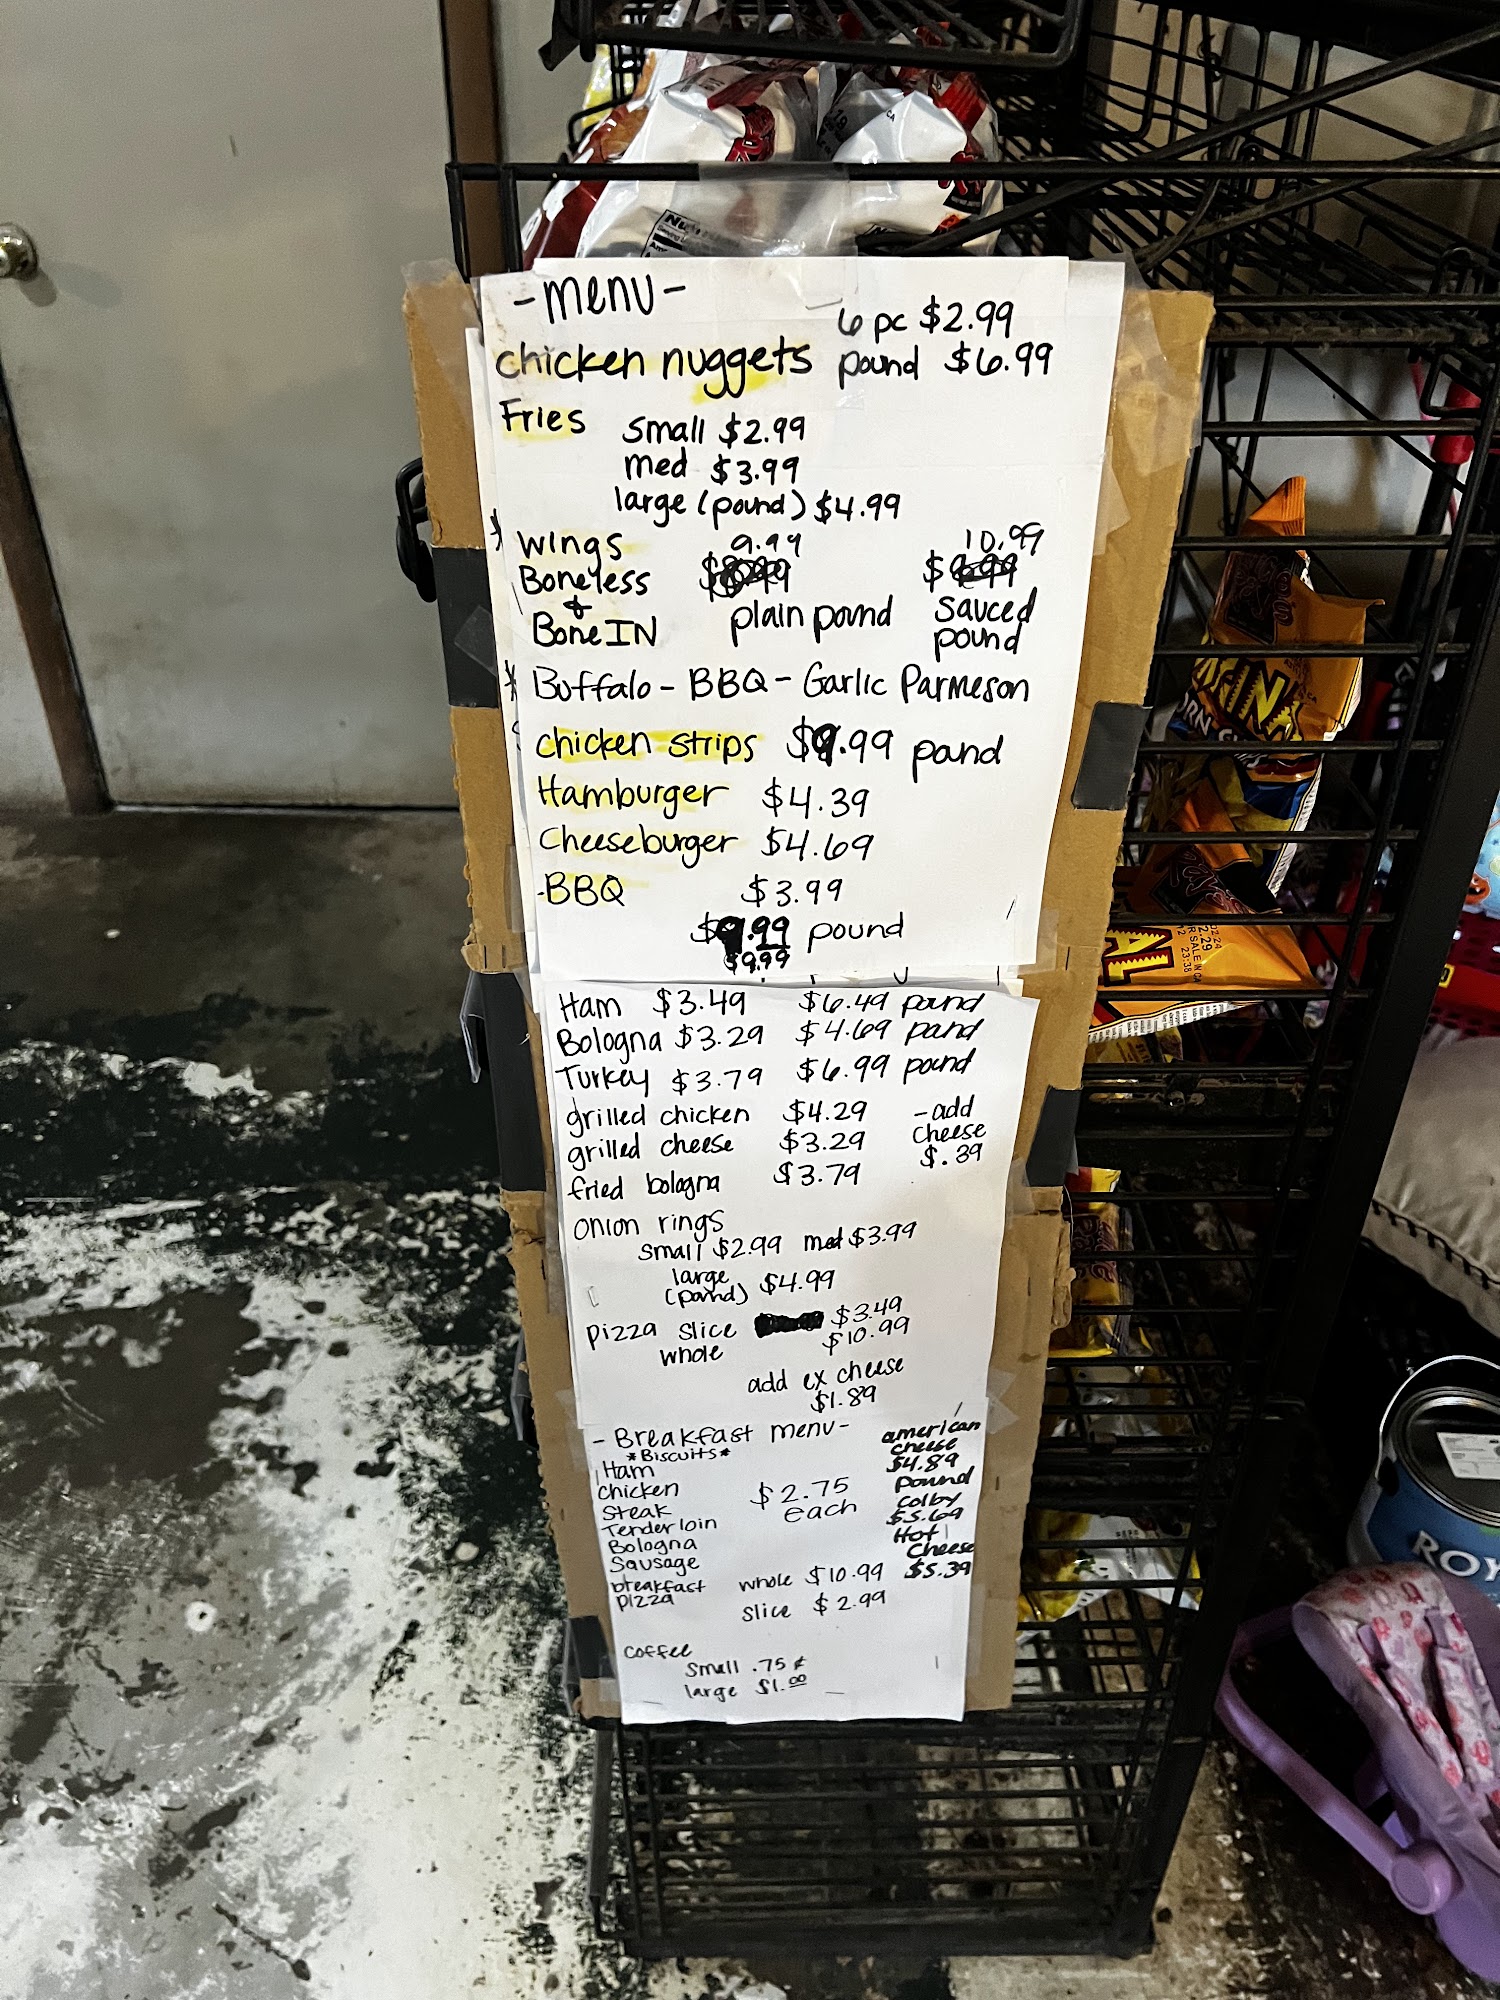 -menu-
chicken nuggets 6 pc $2.99
pound $6.99
Fries
small $2.99
med $3.99
large (pound) $4.99
* wings 9.99 10.99
Boneless $8.99 $9.99
& BoneIN plain pound sauced pound
* Buffalo - BBQ - Garlic Parmeson
chicken strips $9.99 pound
Hamburger $4.39
Cheeseburger $4.69
-BBQ $3.99
$9.99 pound
$9.99
Ham $3.49 $6.49 pound
Bologna $3.29 $4.69 pound
Turkey $3.79 $6.99 pound
grilled chicken $4.29 -add
grilled cheese $3.29 cheese
fried bologna $3.79 $.39
onion rings
small $2.99 med $3.99
large (pound) $4.99
pizza slice $3.49
whole $10.99
add ex cheese
$1.89
-Breakfast menu-
*Biscuits*
Ham
chicken $2.75
steak each
Tenderloin
Bologna
Sausage
breakfast pizza whole $10.99
slice $2.99
american
cheese
$4.89
pound
colby
$5.69
Hot
Cheese
$5.39
coffee
small .75¢
large $1.00
ROY